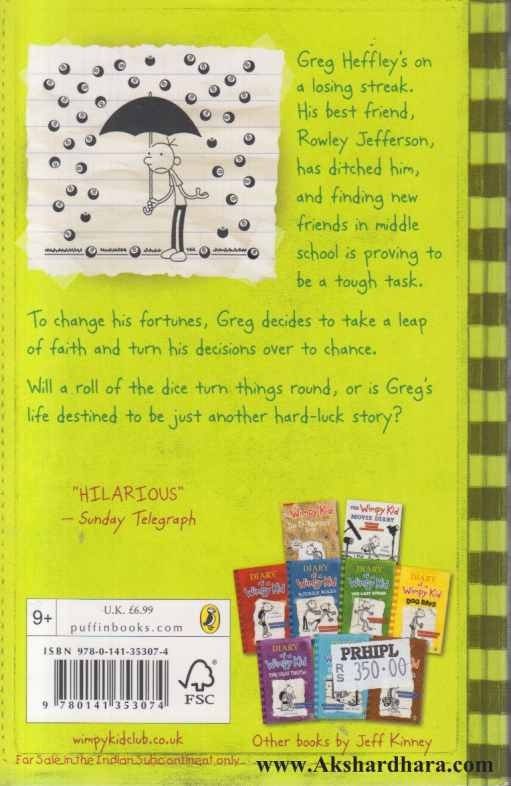 Greg Heffley's on
a losing streak.
His best friend,
Rowley Jefferson,
has ditched him,
and finding new
friends in middle
school is proving to
be a tough task.
To change his fortunes, Greg decides to take a leap
of faith and turn his decisions over to chance.
Will a roll of the dice turn things round, or is Greg's
life destined to be just another hard-luck story?
"HILARIOUS"
– Sunday Telegraph
Wimpy Kid
Do-It-Yourself
THE Wimpy Kid
MOVIE DIARY
DIARY
of a
Wimpy Kid
DIARY
of a
Wimpy Kid
RODRICK RULES
DIARY
of a
Wimpy Kid
THE LAST STRAW
DIARY
of a
Wimpy Kid
DOG DAYS
DIARY
of a
Wimpy Kid
THE UGLY TRUTH
PRHIPL
RS 350.00
9+
U.K. £6.99
puffinbooks.com
ISBN 978-0-141-35307-4
9 780141 353074
FSC
wimpykidclub.co.uk
Other books by Jeff Kinney
For Sale in the Indian Subcontinent only
www.Akshardhara.com